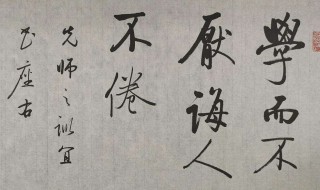 學而不
厭誨人
不倦
先師之訓宜
書座右